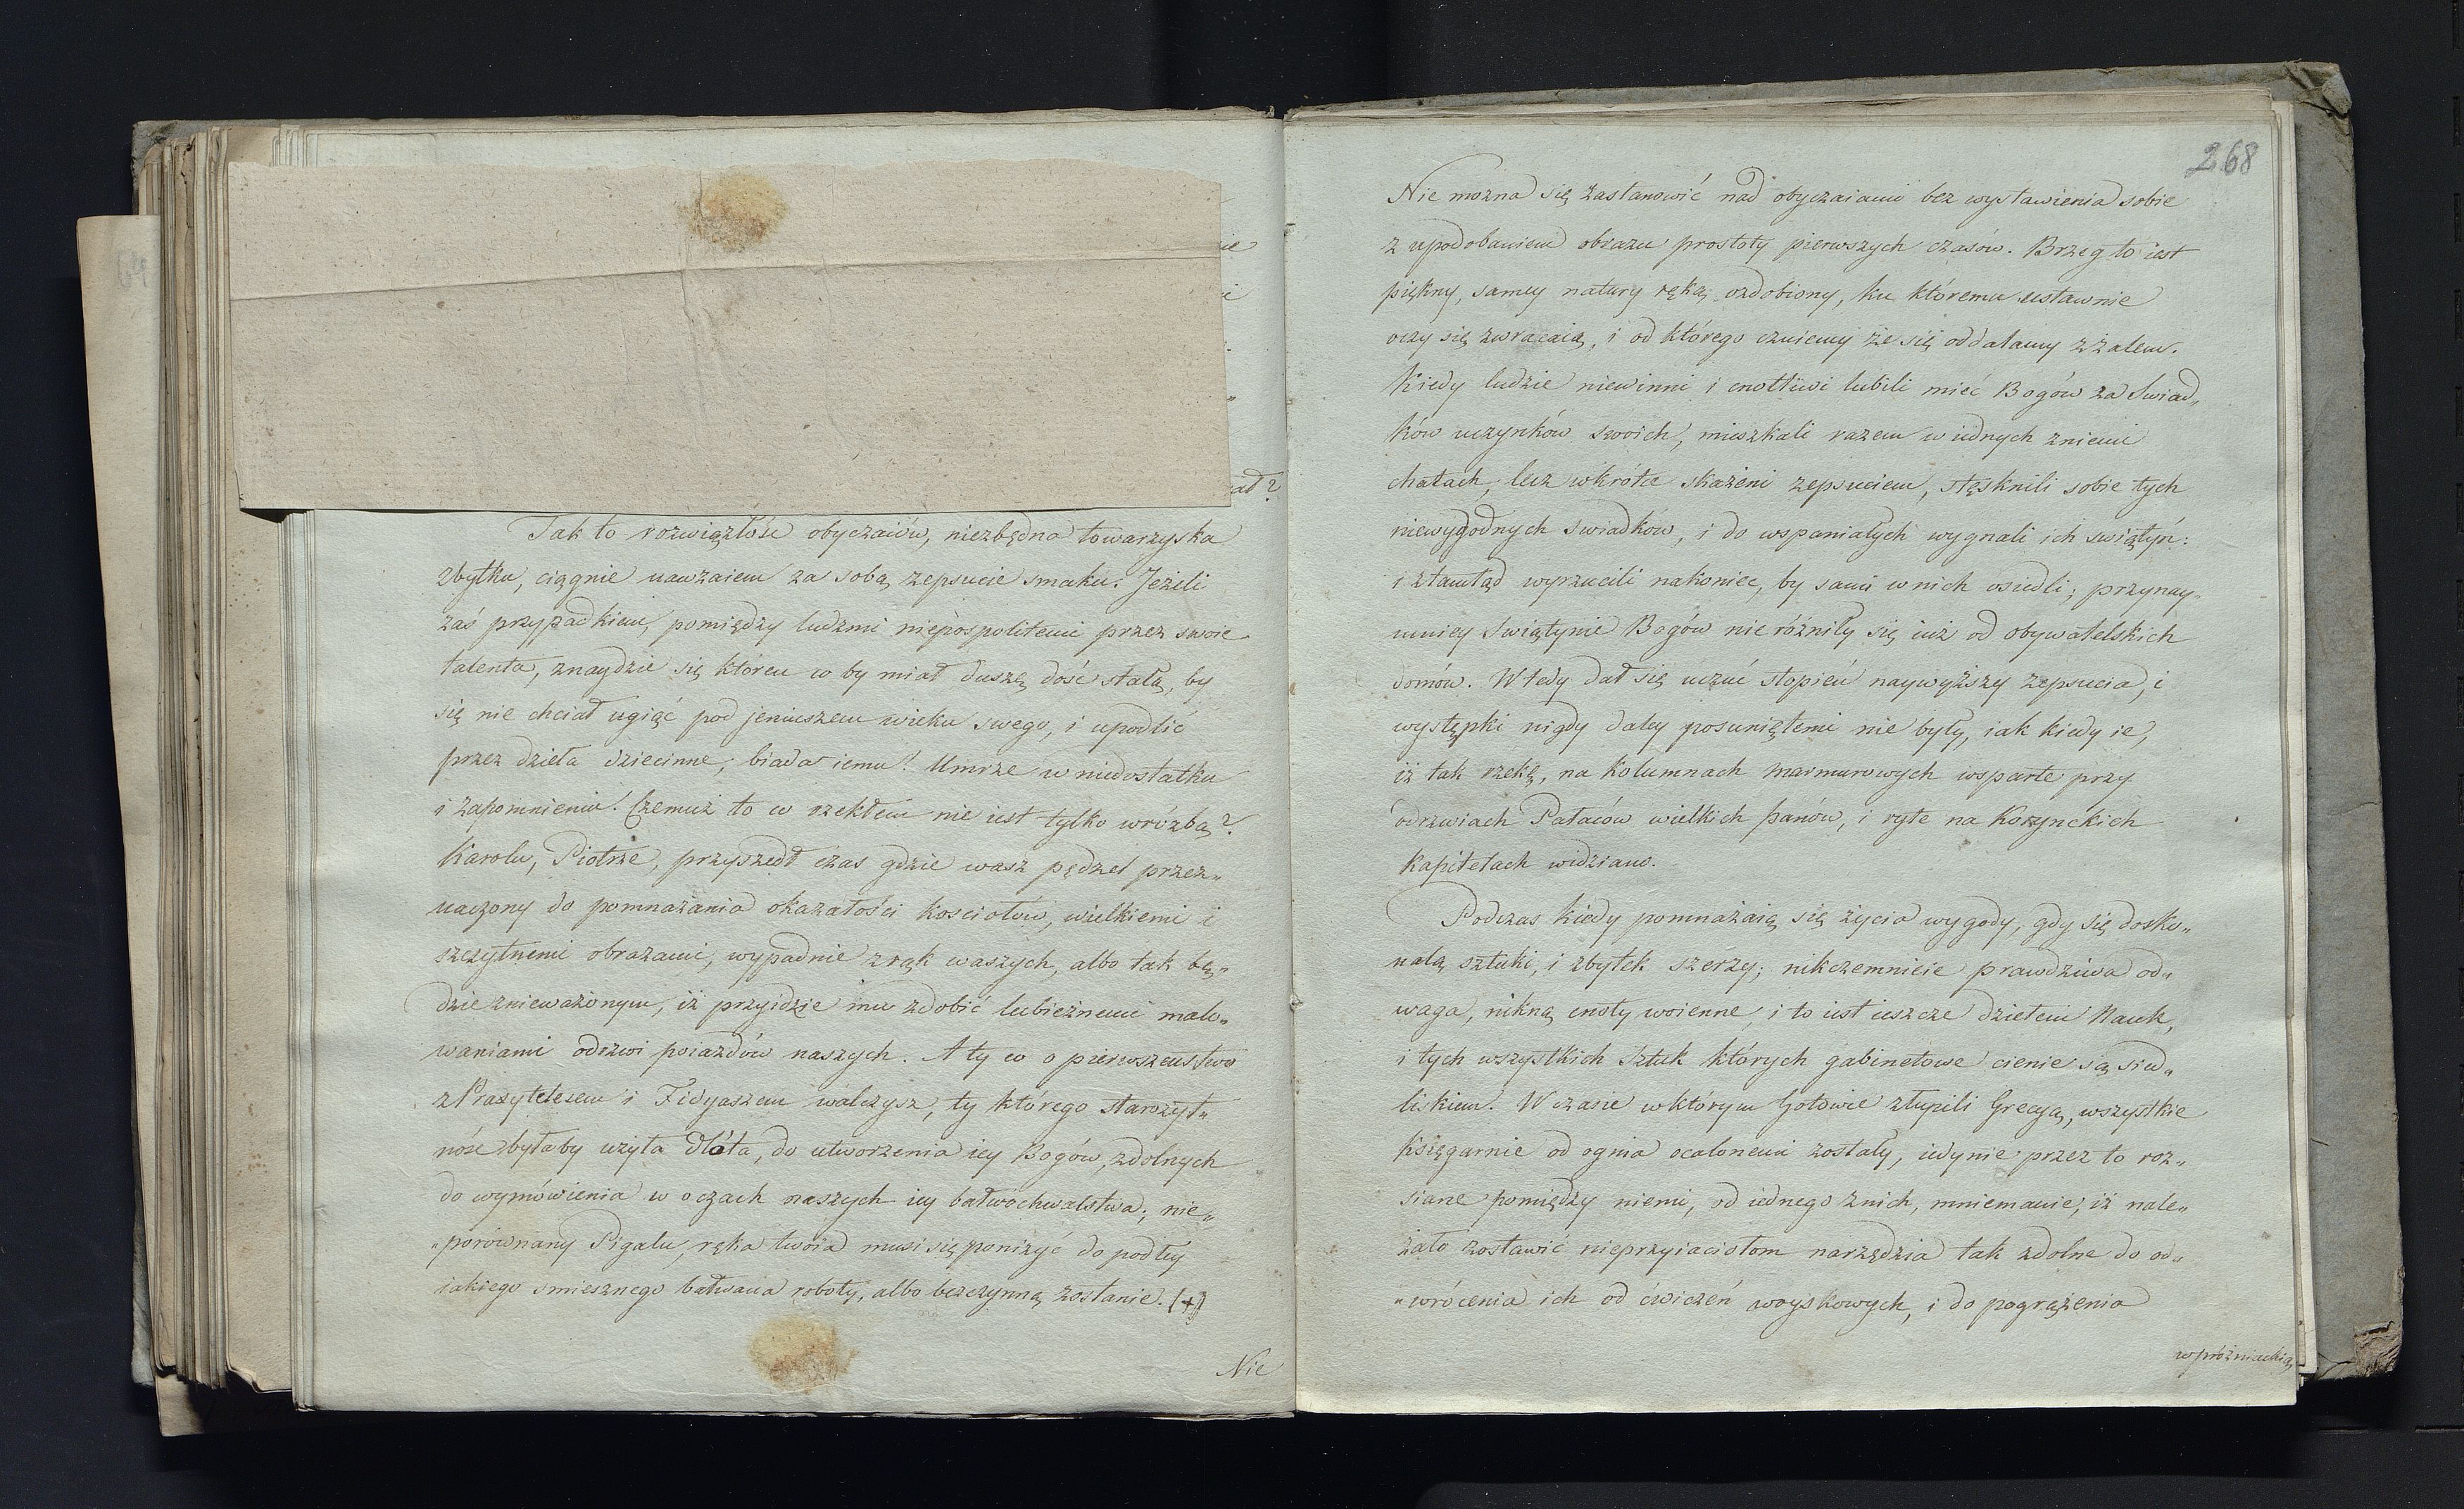 ie
i
ad?
Tak to rozwiązłość obyczaiów, niezbędna towarzyska
zbytku, ciągnie nawzaiem za sobą zepsucie smaku. Jeżeli
zaś przypadkiem, pomiędzy ludzmi niepospolitemi przez swoie
talenta, znaydzie się któren co by miał duszę dość stałą, by
się nie chciał ugiąć pod jeniuszem wieku swego, i upodlić
przez dzieła dziecinne, biada iemu! Umrze w niedostatku
i zapomnieniu! Czemuż to co rzekłem nie iest tylko wróżbą?
Karolu, Piotrze, przyszedł czas gdzie wasz pędzel przez„
naczony do pomnażania okazałości kosciołów, wielkiemi i
szczytnemi obrazami, wypadnie z rąk waszych, albo tak bę„
dzie znieważonym, iż przyidzie mu zdobić lubieżnemi malo„
waniami odrzwi poiazdów naszych. A ty co o pierwszeństwo
z Praxytelesem i Fidyaszem walczysz, ty którego starożyt„
ność byłaby użyła dłóta, do utworzenia iey Bogów, zdolnych
do wymówienia w oczach naszych iey bałwochwalstwa; nie„
„porównany Pigalu, ręka twoia musi się poniżyć do podłey
iakiego smiesznego bałwana roboty, albo bezczynną zostanie. (+)
Nie
268
Nie można się zastanowić nad obyczaiami bez wystawienia sobie
z upodobaniem obrazu prostoty pierwszych czasów. Brzeg to iest
piękny, samey natury ręką ozdobiony, ku któremu ustawnie
oczy się zwracaią, i od którego czuiemy że się oddalamy z żalem.
Kiedy ludzie niewinni i cnotliwi lubili mieć Bogów za Swiad„
ków uczynków swoich, mieszkali razem w iednych z niemi
chatach, lecz wkrótce skażeni zepsuciem, stęsknili sobie tych
niewygodnych swiadków, i do wspaniałych wygnali ich swiątyń:
i ztamtąd wyrzucili nakoniec, by sami w nich osiedli; przynay„
mniey Swiątynie Bogów nie różniły się iuż od obywatelskich
domów. Wtedy dał się uczuć stopień naywyższy zepsucia, i
występki nigdy daley posuniętemi nie były, iak kiedy ie,
iż tak rzekę, na kolumnach marmurowych wsparte przy
odrzwiach Pałaców wielkich panów, i ryte na Korynckich
kapitelach widziano.
Podczas kiedy pomnażaią się życia wygody, gdy się dosko„
nalą sztuki, i zbytek szerzy; nikczemnieie prawdziwa od„
waga, nikną cnoty woienne, i to iest ieszcze dziełem Nauk,
i tych wszystkich Sztuk których gabinetowe cienie są sied„
liskiem. W czasie w którym Gotowie złupili Grecyą, wszystkie
księgarnie od ognia ocalonemi zostały, iedynie przez to roz„
siane pomiędzy niemi, od iednego z nich, mniemanie, iż nale„
żało zostawić nieprzyiaciołom narzędzia tak zdolne do od„
„wrócenia ich od ćwiczeń woyskowych, i do pogrążenia
w próżniackie